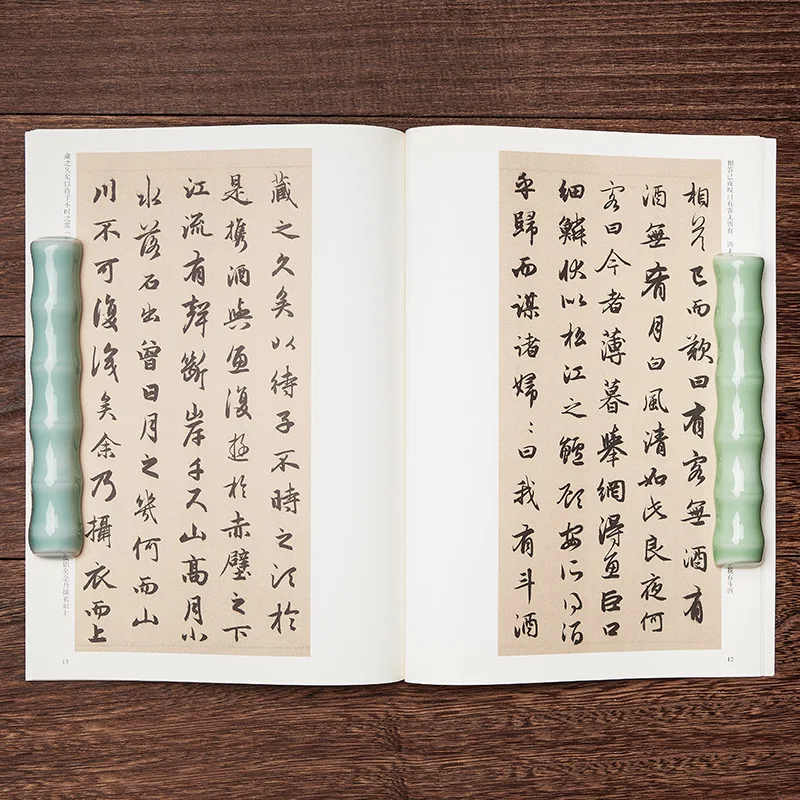 相答已而歎曰有客無酒有
酒無肴月白風清如此良夜何
客曰今者薄暮舉網得魚巨口
細鱗狀似松江之鱸顧安所得酒
乎歸而謀諸婦〻曰我有斗酒
相答已而叹曰有客无酒有 酒无
我有斗酒
12
藏之久矣以待子不時之須於
是攜酒與魚復遊於赤壁之下
江流有聲斷岸千尺山高月小
水落石出曾日月之幾何而山
川不可復識矣余乃攝衣而上
藏之久矣以待子不时之需
识矣余乃摄衣而上
13